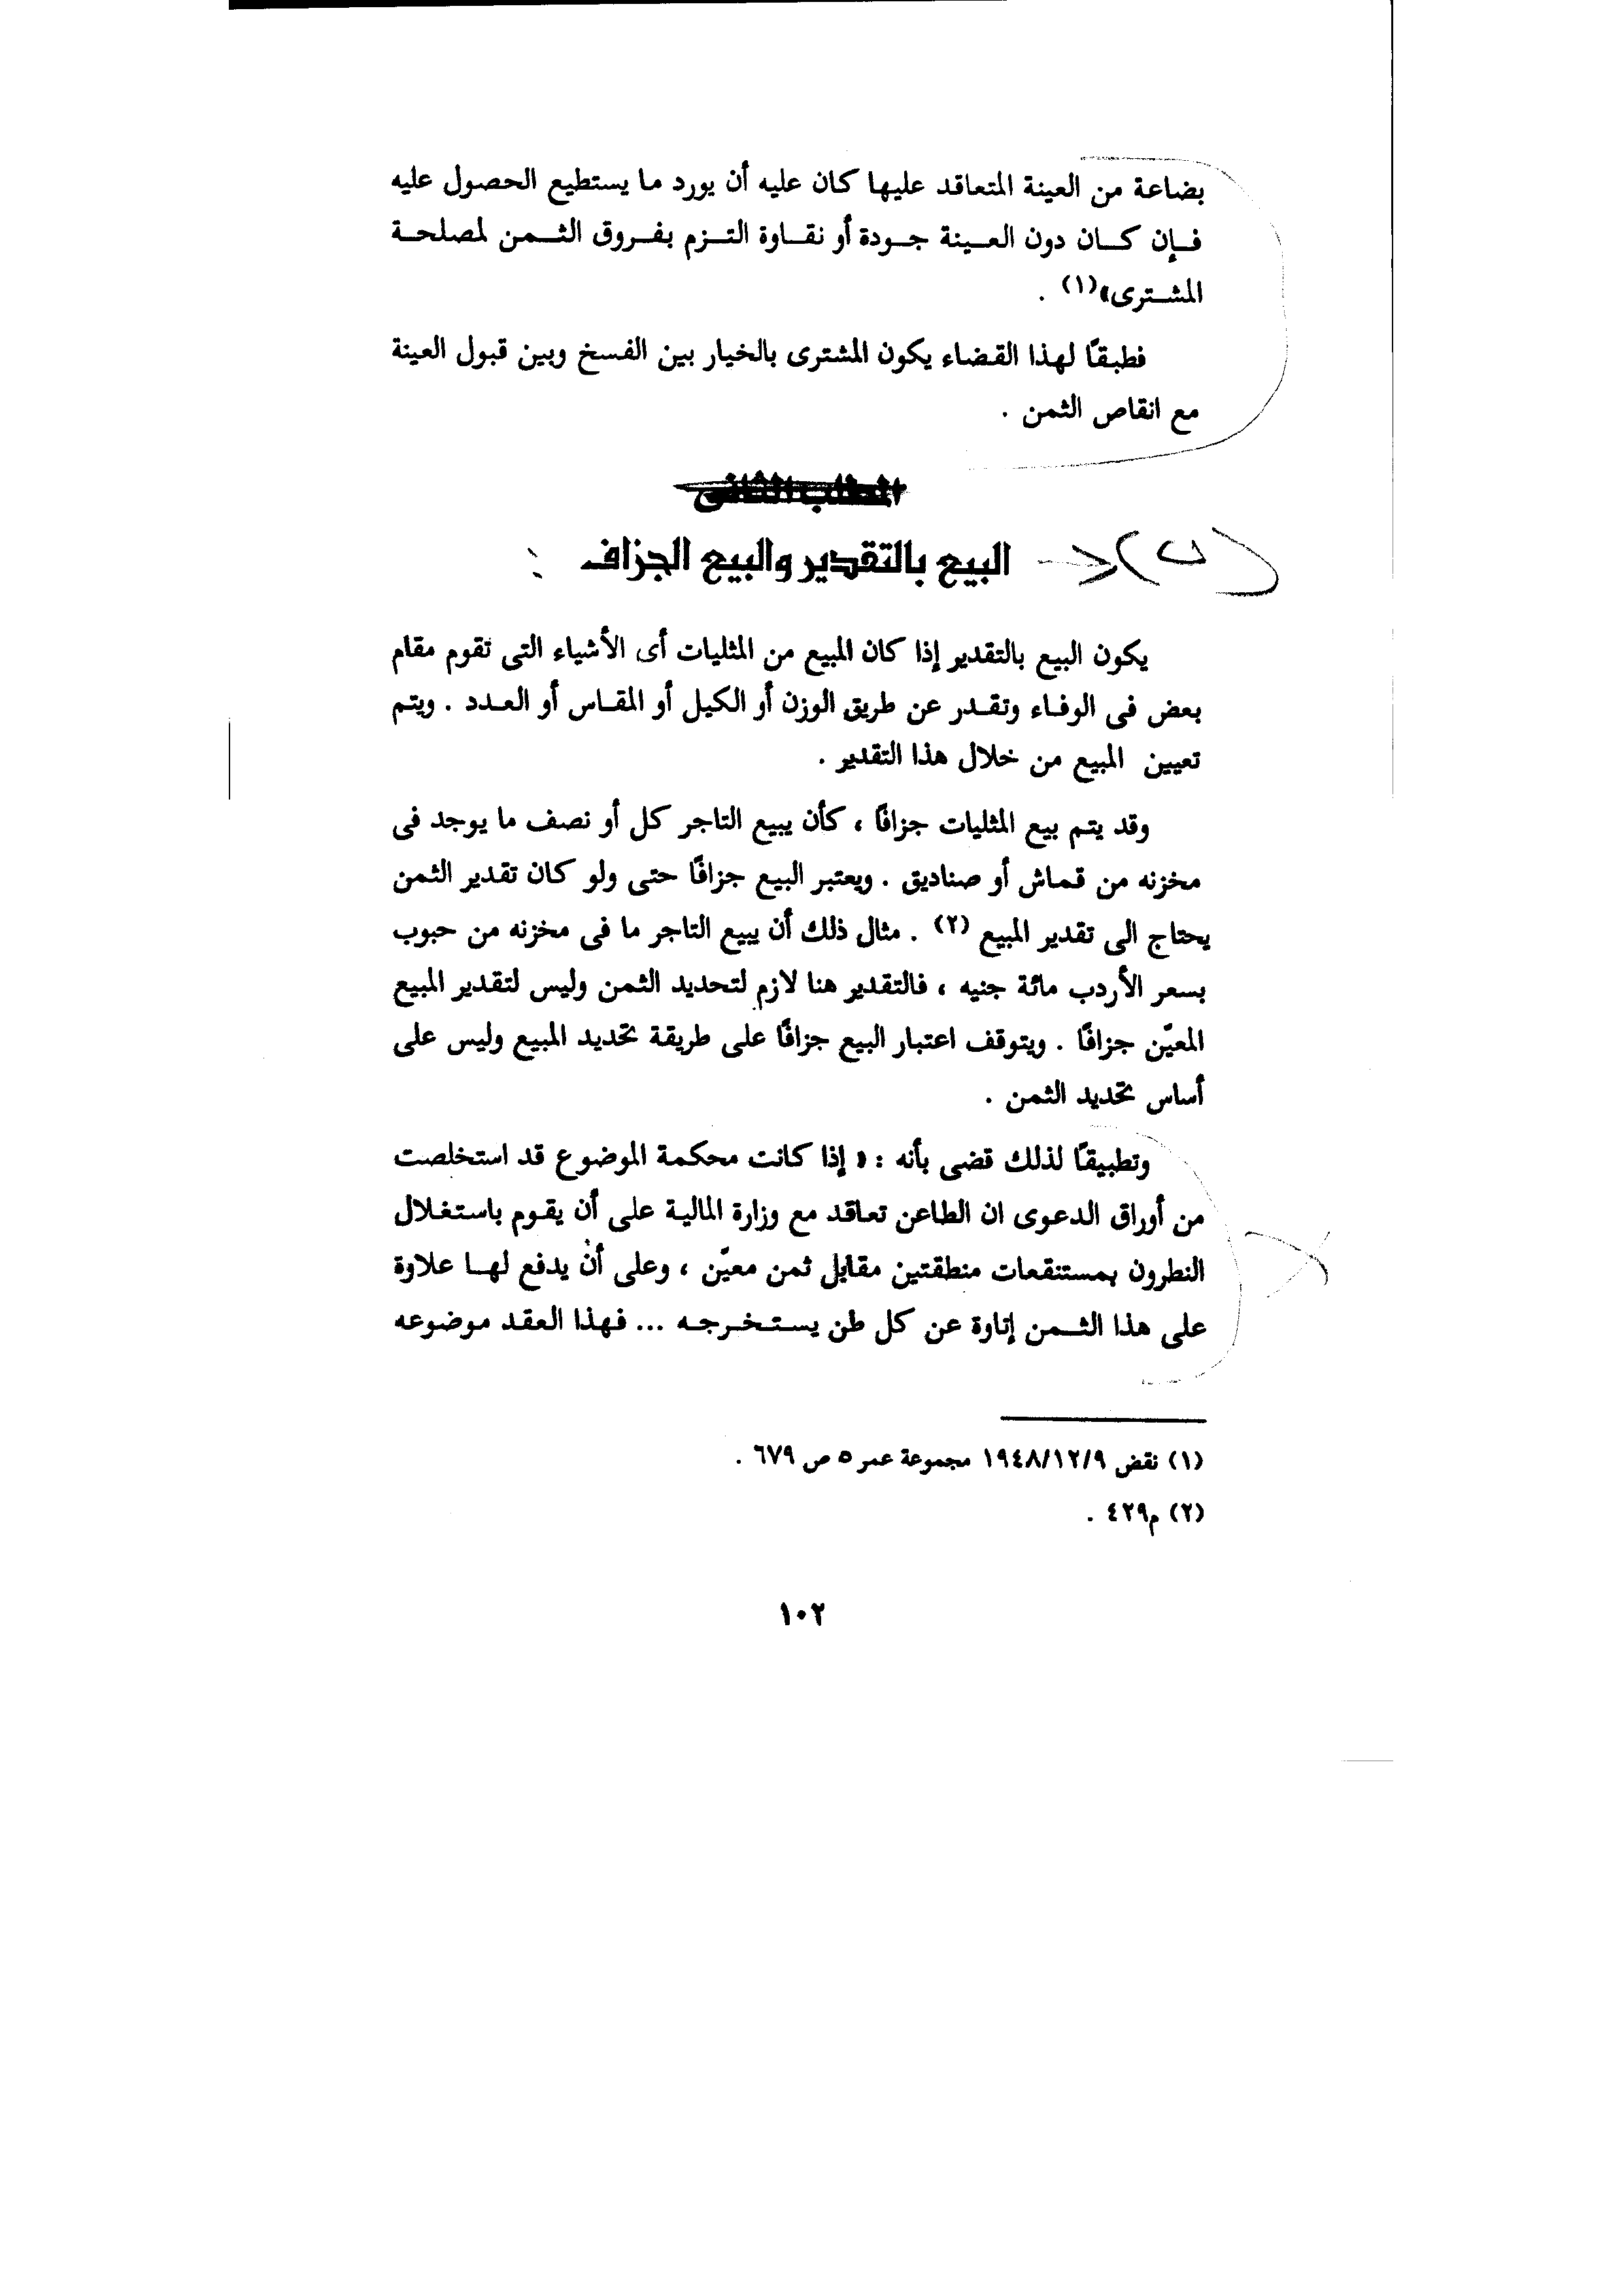 بضاعة من العينة المتعاقد عليها كان عليه أن يورد ما يستطيع الحصول عليه
فإن كان دون العينة جودة أو نقاوة التزم بفروق الثمن لمصلحة
المشترى»(١) .
فطبقًا لهذا القضاء يكون المشترى بالخيار بين الفسخ وبين قبول العينة
مع انقاص الثمن .
المطلب الثانى
البيع بالتقدير والبيع الجزاف :
يكون البيع بالتقدير إذا كان المبيع من المثليات أى الأشياء التى تقوم مقام
بعض فى الوفاء وتقدر عن طريق الوزن أو الكيل أو المقاس أو العدد . ويتم
تعيين المبيع من خلال هذا التقدير .
وقد يتم بيع المثليات جزافًا ، كأن يبيع التاجر كل أو نصف ما يوجد فى
مخزنه من قماش أو صناديق . ويعتبر البيع جزافًا حتى ولو كان تقدير الثمن
يحتاج الى تقدير المبيع (٢) . مثال ذلك أن يبيع التاجر ما فى مخزنه من حبوب
بسعر الأردب مائة جنيه ، فالتقدير هنا لازم لتحديد الثمن وليس لتقدير المبيع
المعيّن جزافًا . ويتوقف اعتبار البيع جزافًا على طريقة تحديد المبيع وليس على
أساس تحديد الثمن .
وتطبيقًا لذلك قضى بأنه : « إذا كانت محكمة الموضوع قد استخلصت
من أوراق الدعوى ان الطاعن تعاقد مع وزارة المالية على أن يقوم باستغلال
النطرون بمستنقعات منطقتين مقابل ثمن معيّن ، وعلى أن يدفع لها علاوة
على هذا الثمن إتاوة عن كل طن يستخرجه ... فهذا العقد موضوعه
(١) نقض ١٩٤٨/١٢/٩ مجموعة عمر ٥ ص ٦٧٩ .
(٢) م٤٢٩ .
١٠٢